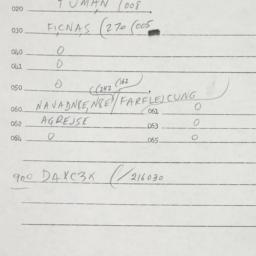 020 TUMAN (008
030 FICNAS (270 (005
040 0
041 0
050 0 ((242 (162
060 NAVADNBE,NBE/FARFLEICUNG 061 0
062 AGREJSE 063 0
064 0 065 0
900 DAXC3K (/216030